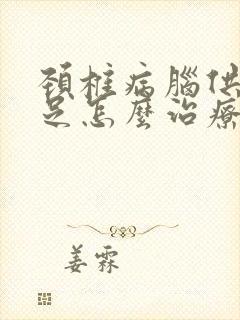 頸椎病腦供
足怎麼治療
姜霖